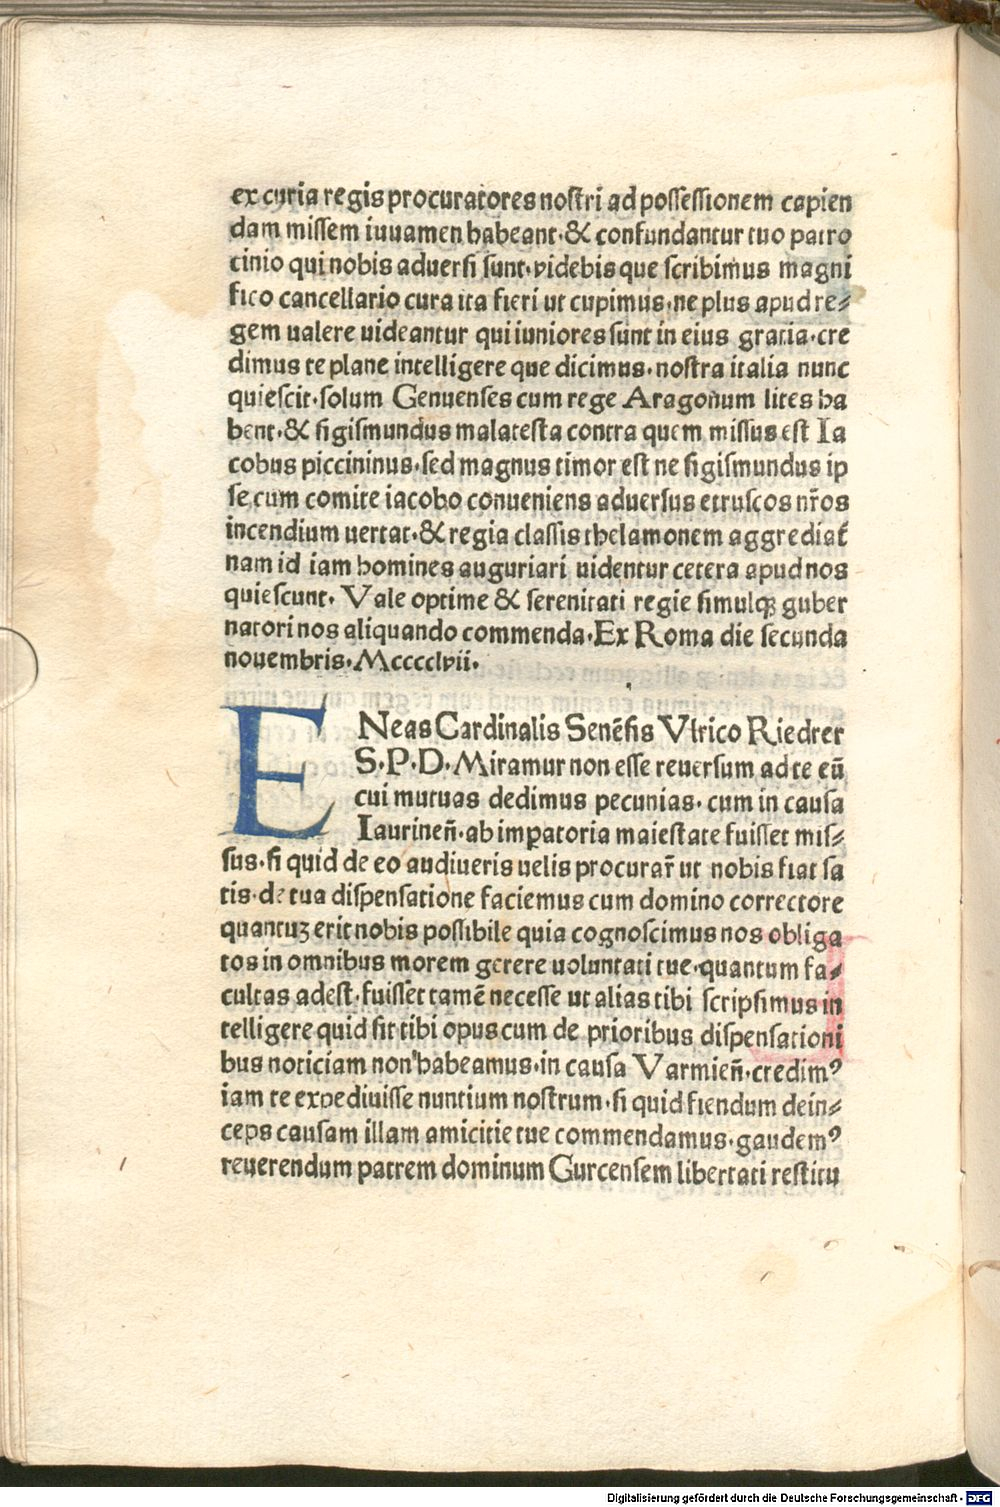 ex curia regis procuratores nostri ad possessionem capien
dam missem iuuamen habeant·& confundantur tuo patro
cinio qui nobis aduersi sunt·videbis que scribimus magni
fico cancellario cura ita fieri ut cupimus·ne plus apud re⸗
gem ualere uideantur qui iuniores sunt in eius gratia·cre
dimus te plane intelligere que dicimus·nostra italia nunc
quiescit·solum Genuenses cum rege Aragonum lites ha
bent·& sigismundus malatesta contra quem missus est Ia
cobus piccininus·sed magnus timor est ne sigismundus ip
se cum comite iacobo conueniens aduersus etruscos nr̄os
incendium uertat·& regia classis thelamonem aggrediat᷑
nam id iam homines auguriari uidentur cetera apud nos
quiescunt· Vale optime & serenitati regie simulqꝫ guber
natori nos aliquando commenda·Ex Roma die secunda
nouembris·Mcccclvii·
ENeas Cardinalis Senēsis Vlrico Riedrer
S·P·D·Miramur non esse reuersum ad te eū
cui mutuas dedimus pecunias·cum in causa
Iaurineñ·ab imꝑatoria maiestate fuisset mis⸗
sus·si quid de eo audiueris uelis procurar̄ ut nobis fiat sa
tis·de tua dispensatione faciemus cum domino correctore
quantuꝫ erit nobis possibile quia cognoscimus nos obliga
tos in omnibus morem gerere uoluntati tue·quantum fa⸗
cultas adest·fuisset tamē necesse ut alias tibi scripsimus in
telligere quid sit tibi opus cum de prioribus dispensationi
bus noticiam non habeamus·in causa Varmieñ·credimꝰ
iam te expediuisse nuntium nostrum·si quid fiendum dein⸗
ceps causam illam amicitie tue commendamus·gaudemꝰ
reuerendum patrem dominum Gurcensem libertati restitu
Digitalisierung gefördert durch die Deutsche Forschungsgemeinschaft - DFG